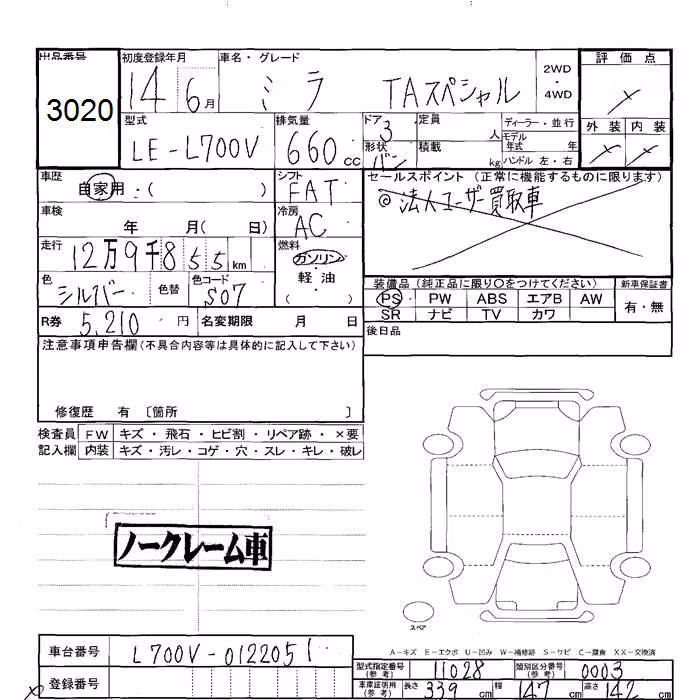 出品番号 初度登録年月 車名・グレード 評価点
3020 14 6月 ミラ TAスペシャル 2WD・4WD
型式 排気量 ドア 3 定員 人 ディーラー・並行 外装 内装
LE-L700V 660cc 形状 バン 積載 kg モデル年式 年 ハンドル 左・右
車歴 シフト セールスポイント(正常に機能するものに限ります)
自家用:( ) FAT ◎法人ユーザー買取車
車検 冷房
年 月( 日) AC
走行 燃料
12万9千855km ガソリン
色 色コード 軽・油 装備品(純正品に限り○をつけてください) 新車保証書
シルバー 色替 S07 ( ) PS PW ABS エアB AW 有・無
SR ナビ TV カワ
R券 5,210円 名変期限 月 日 後日品
注意事項申告欄(不具合内容等は具体的に記入して下さい)
修復歴 有 〔箇所 〕
検査員 FW キズ・飛石・ヒビ割・リペア跡・×要
記入欄 内装 キズ・汚レ・コゲ・穴・スレ・キレ・破レ
ノークレーム車
スペア
A-キズ E-エクボ U-凹み W-補修跡 S-サビ C-腐食 XX-交換済
車台番号 L700V-0122051 型式指定番号(参考) 11028 類別区分番号(参考) 0003
登録番号 車庫証明用(参考) 長さ 339cm 幅 147cm 高さ 142cm